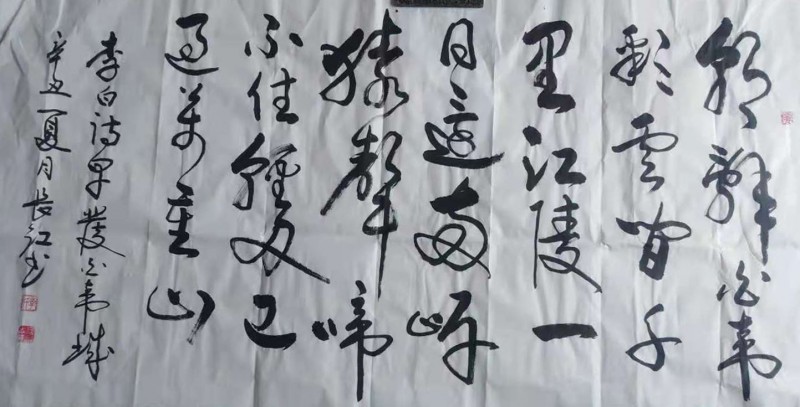 朝辭白帝
彩雲間千
里江陵一
日還兩岸
猿聲啼
不住輕舟已
過萬重山
李白詩早發白帝城
辛丑夏月長江書